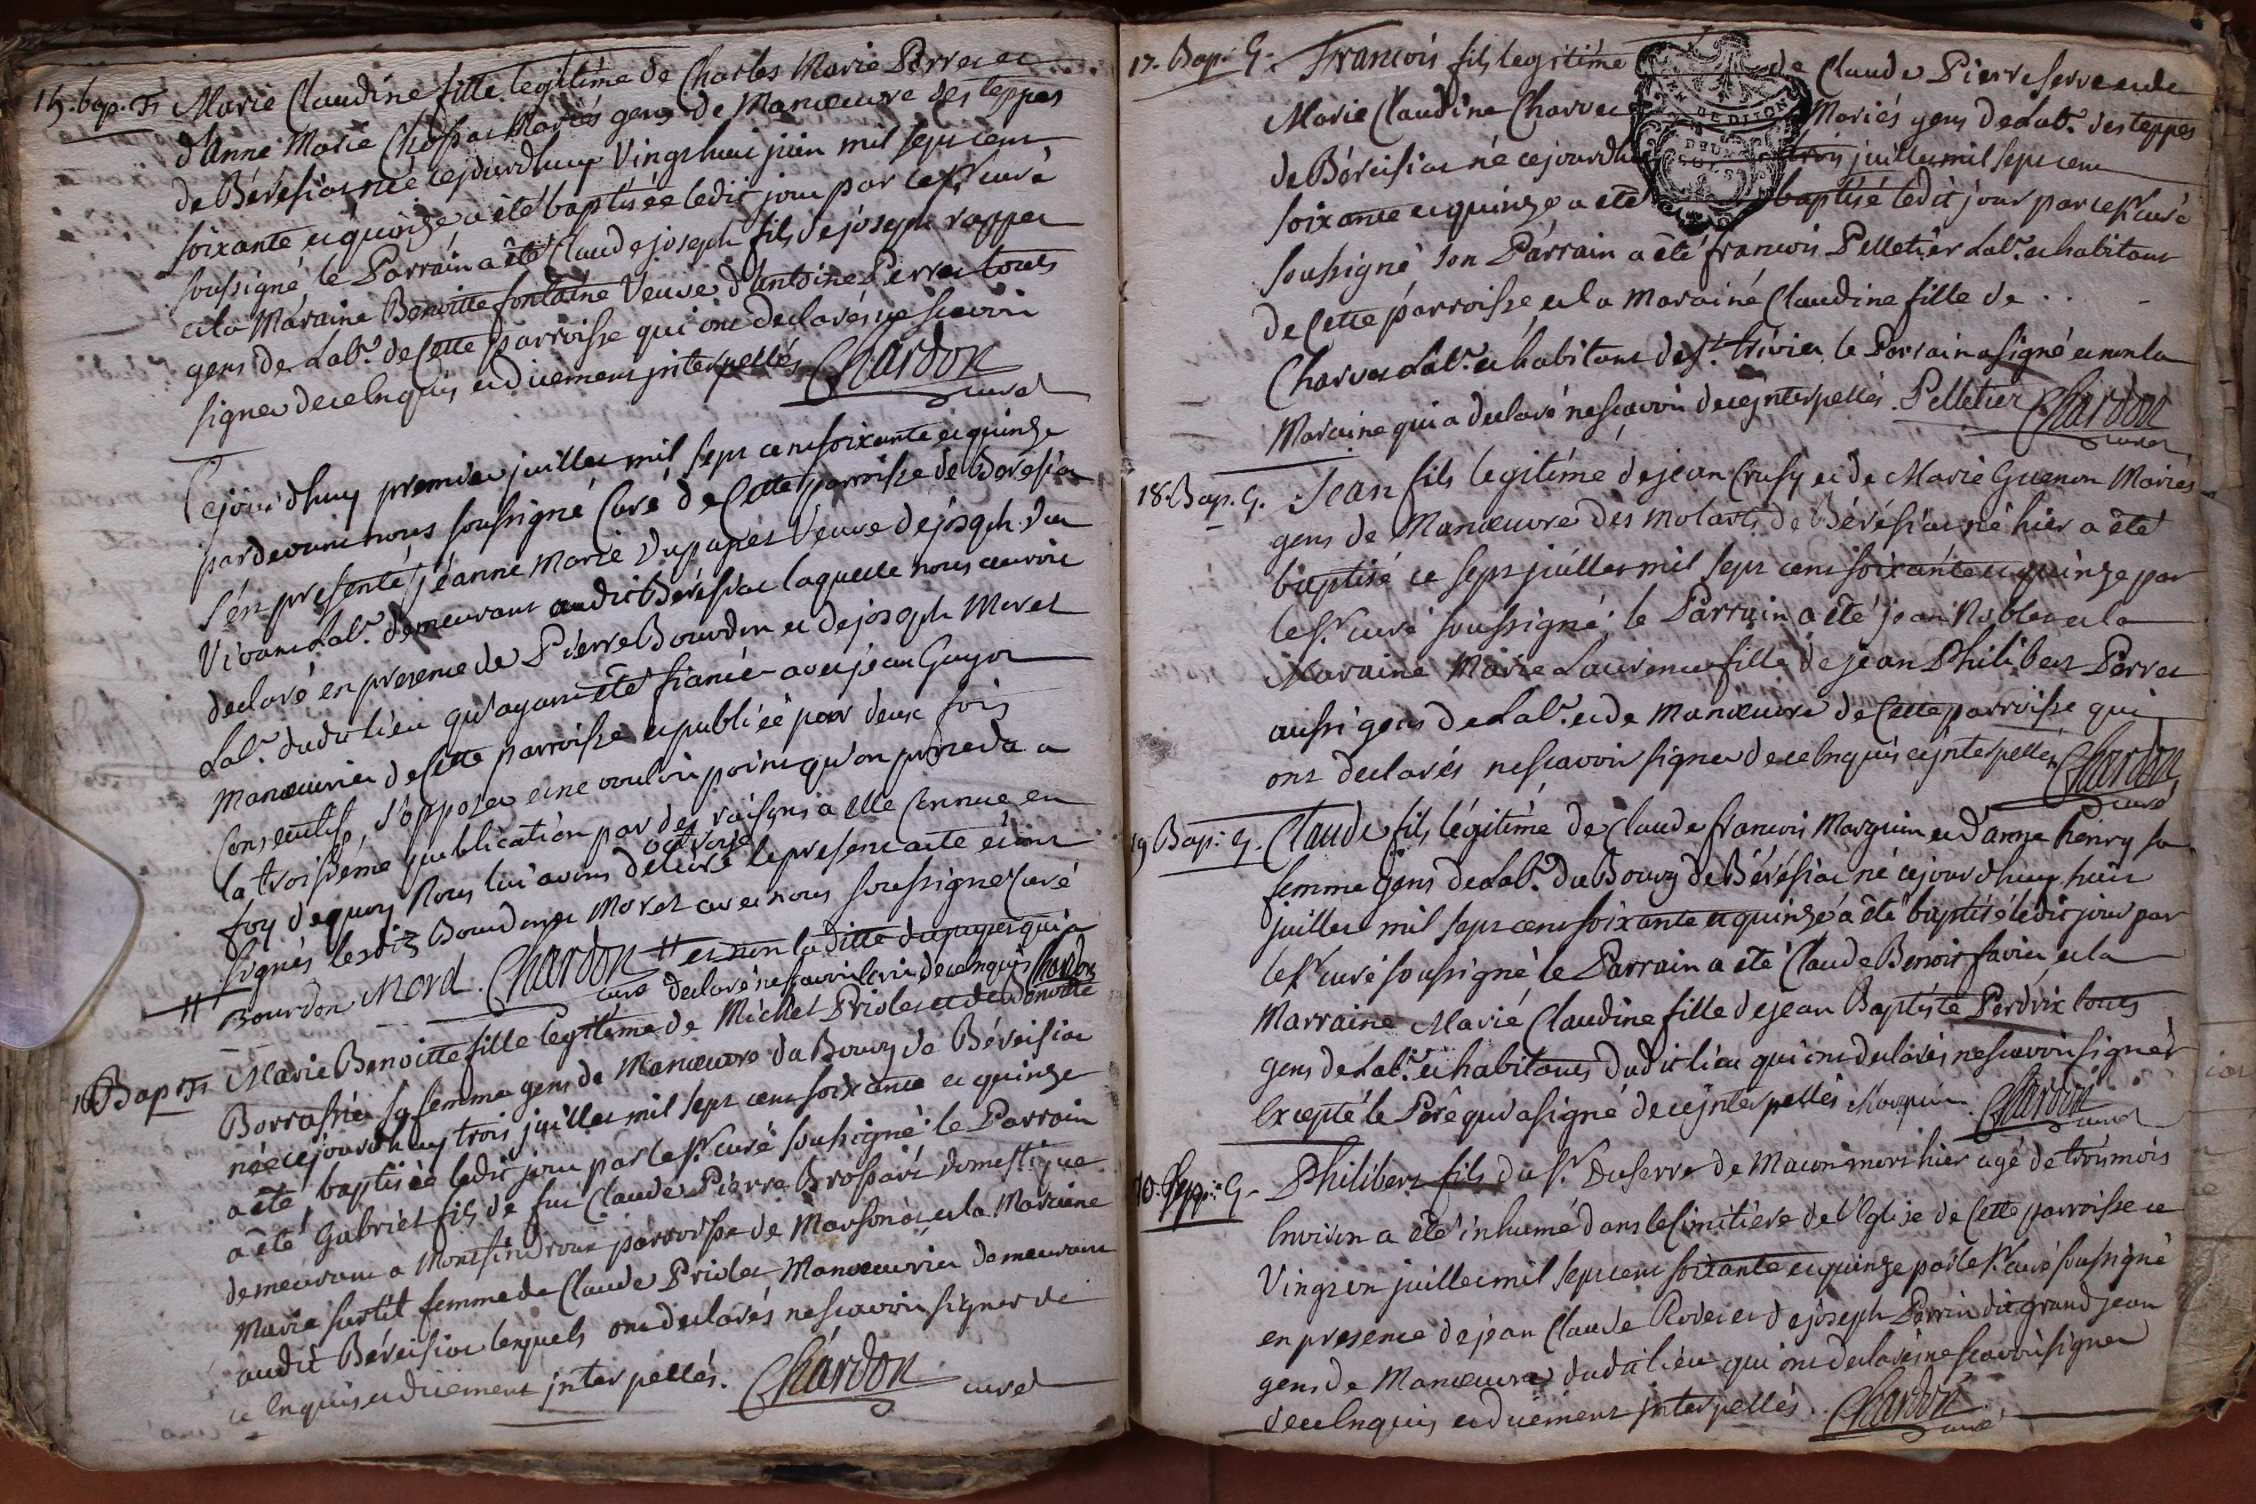 15. bap. F. Marie Claudine fille legitime de Charles Marie Perret et
d'Anne Marie Chossat Mariés gens de Manœuvre des teppes
de Béréisiat née cejourdhuy Vingt huit juin mil sept cent
soixante et quinze a été baptisée ledit jour par le Sr. curé
soussigné le Parrain a été Claude joseph fils de joseph rappet
et la Maraine Benoitte fontaine Veuve d'Antoine Perret tous
gens de Labr. de Cette parroisse qui ont declarés ne scavoir
signer de ce Enquis et duement jnterpellés Chardon
curé
Cejourdhuy premier juillet mil sept cent soixante et quinze
pardevant nous soussigné Curé de Cette parroisse de Béresiat
s'est presenté jéanne Marie Dupapet Veuve de joseph
Vivant Labr. demeurant audit Béréisiat laquelle nous auroit
declaré en presence de Pierre Bourdon et de joseph Morel
Labr. dudit lieu qu'ayant été fiancée avec jean Guyot
manœuvrier de Cette parroisse et publiée par deux fois
Consecutif, s'opposer et ne vouloir point qu'on proceda a
la troisiéme publication par des raisons a elle Connue en
octroyé
foy dequoy Nous lui avons delivré le present acte et ont
signés lesdits Bourdon et Morel avec nous soussigné Curé
# Bourdon Morel. Chardon # et non la ditte dupapet qui a
curé declaré ne scavoir de ce enquis Chardon
16 Bap F. Marie Benoitte fille legitime de Michel Priolet et de Benoitte
Borrassier sa femme gens de Manœuvre du Bourg de Béréisiat
née cejourdhuy trois juillet mil sept cent soixante et quinze
a été baptisée ledit jour par le Sr. curé soussigné le Parrain
a été Gabriel fils de fut Claude Pierre Brossart domestique
demeurant a Montsindroux parroisse de Marsonas et la Maraine
Marie surtil femme de Claude Priolet Manœuvrier demeurant
audit Béréisiat lesquels ont declarés ne scavoir signer de
ce enquis et duement jnterpellés. Chardon curé
17. Bap. G. Francois fils legitime de Claude Pierre Serve et de
Marie Claudine Charvet Mariés gens de Labr. des teppes
de Béréisiat né cejourdhuy trois juillet mil sept cent
soixante et quinze a été baptisé ledit jour par le Sr. curé
soussigné son Parrain a été francois Pelletier Labr. et habitant
de Cette parroisse et la Maraine Claudine fille de . . -
Charvet Labr. et habitant de St. trivier le Parrain a signé et non la
Maraine qui a declaré ne scavoir de ce jnterpellés. Pelletier Chardon
curé
18. Bap. G. Jean fils legitime de jean Crusy et de Marie Guenon Mariés
gens de Manœuvre des Molarts de Béréisiat né hier a été
baptisé ce sept juillet mil sept cent soixante et quinze par
le Sr. curé soussigné le Parrain a été jean Noblet et la
Maraine Marie Laurence fille de jean Philibert Perret
aussi gens de Labr. et de Manœuvre de Cette parroisse qui
ont declarés ne scavoir signer de ce Enquis et jnterpellés Chardon
curé
19 Bap. G. Claude fils légitime de Claude francois Marguin et d'anne henry sa
femme gens de Labr. du Bourg de Béréisiat né cejourdhuy huit
juillet mil sept cent soixante et quinze a été baptisé ledit jour par
le Sr. curé soussigné, le Parrain a été Claude Benoit favier et la
Marraine Marie Claudine fille de jean Baptiste Perdrix tous
gens de Labr. et habitants dudit lieu qui ont declarés ne scavoir signer
Excepté le Pere qui a signé de ce jnterpellés Marguin. Chardon
curé
10. Sep. G. Philibert fils du Sr. Duserre de Macon mort hier agé de trois mois
Environ a été inhumé dans le Cimitiere de l'Eglise de Cette parroisse ce
Vingt un juillet mil sept cent soixante et quinze par le Sr. curé soussigné
en presence de jean Claude Rodet et de joseph Perrin dit grand jean
gens de Manœuvre dudit lieu qui ont declarés ne scavoir signer
de ce Enquis et duement jnterpellés. Chardon
curé